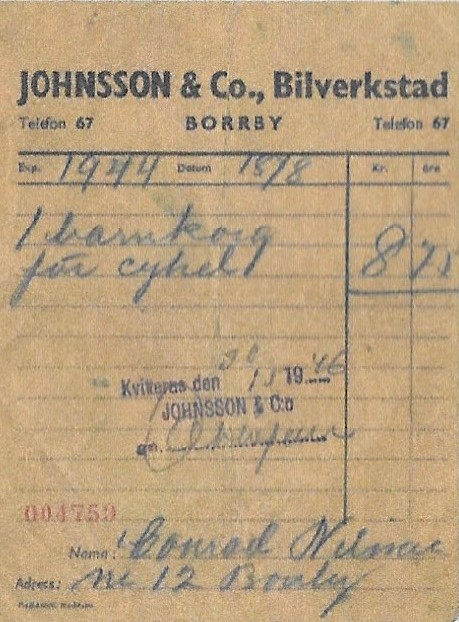 JOHNSSON & Co., Bilverkstad
Telefon 67 BORRBY Telefon 67
Exp. 1944 Datum 18/8 Kr. öre
1 barnkorg
för cykel 8 75
Kvitteras den 19 46
JOHNSSON & Co
gm.
004759
Namn: Conrad
Adress: 12 Borrby